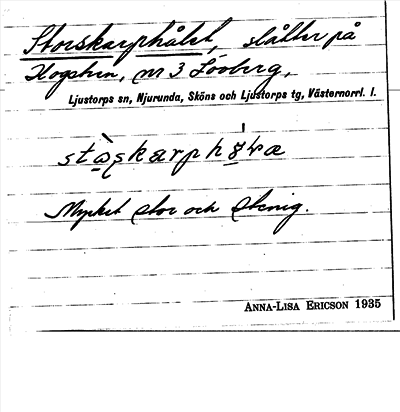 Storskarphålet, slåtter på
nr 3 Lövberg,
Ljustorps sn, Njurunda, Sköns och Ljustorps tg, Västernorrl. l.
Mycket stor och stenig.
ANNA-LISA ERICSON 1935